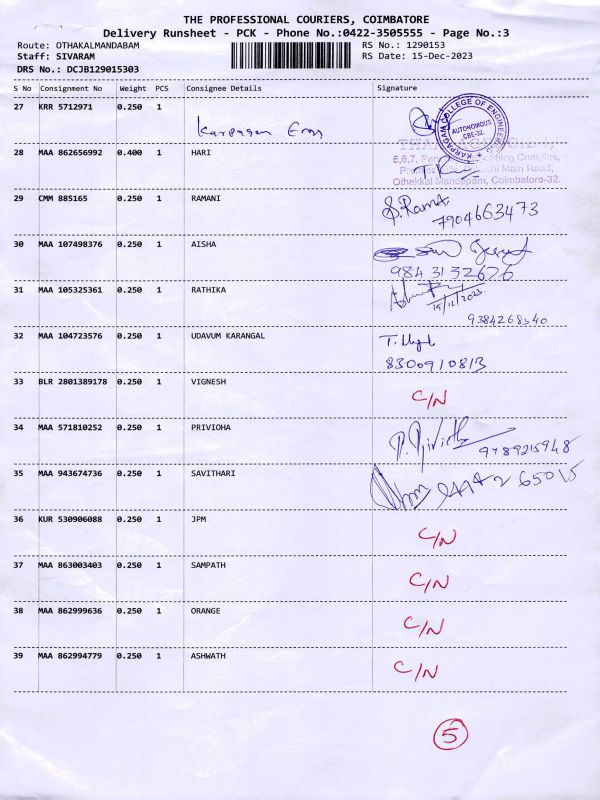 THE PROFESSIONAL COURIERS, COIMBATORE
Delivery Runsheet - PCK - Phone No.:0422-3505555 - Page No.:3
Route: OTHAKALMANDABAM RS No.: 1290153
Staff: SIVARAM RS Date: 15-Dec-2023
DRS No.: DCJB129015303
S No Consignment No Weight PCS Consignee Details Signature
27 KRR 5712971 0.250 1
Karpagam Engg
KARPAGAM COLLEGE OF ENGINEERING
AUTONOMOUS
CBE-32.
28 MAA 862656992 0.400 1 HARI
Complex,
Main Road,
Othakkal Mandapam, Coimbatore-32.
29 CMM 885165 0.250 1 RAMANI S.Rama
7904663473
30 MAA 107498376 0.250 1 AISHA
9843132676
31 MAA 105325361 0.250 1 RATHIKA
15/12/2023
9384268540
32 MAA 104723576 0.250 1 UDAVUM KARANGAL
8300910813
33 BLR 2801389178 0.250 1 VIGNESH C/N
34 MAA 571810252 0.250 1 PRIVIOHA
9789215948
35 MAA 943674736 0.250 1 SAVITHARI
36 KUR 530906088 0.250 1 JPM C/N
37 MAA 863003403 0.250 1 SAMPATH C/N
38 MAA 862999636 0.250 1 ORANGE C/N
39 MAA 862994779 0.250 1 ASHWATH C/N
5